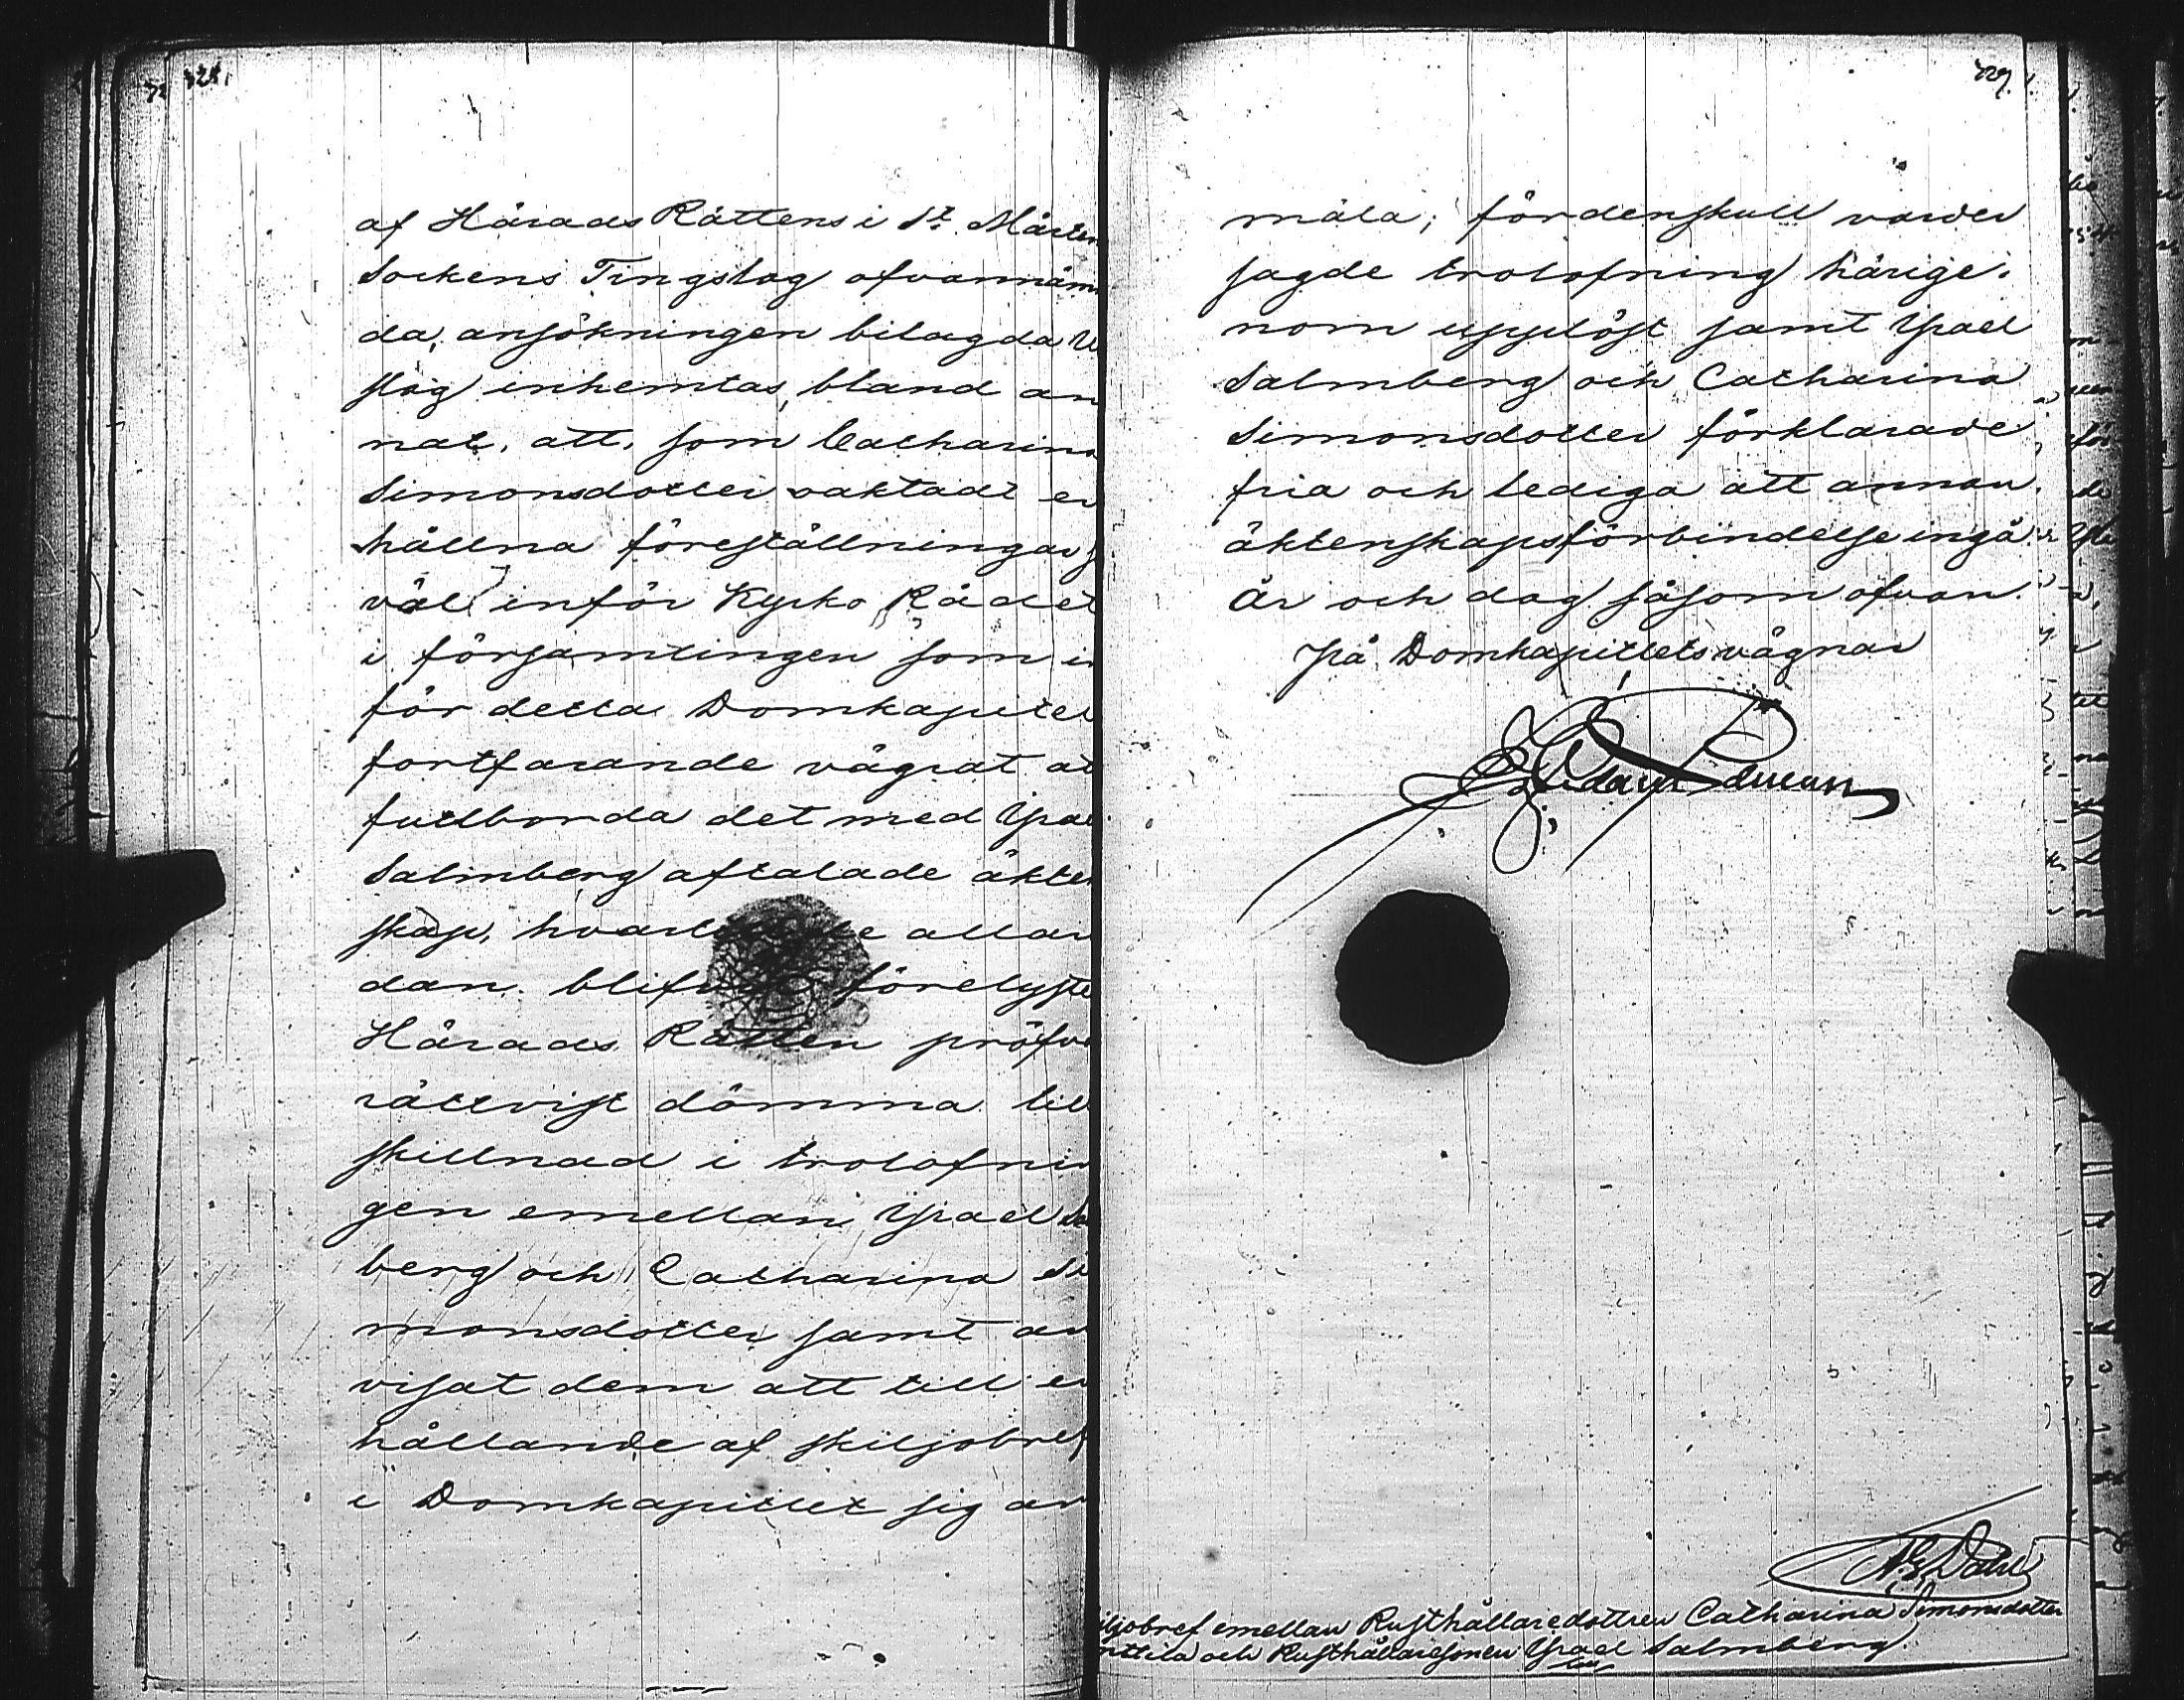 728.
af Härads Rättens i St. Mårtens
Sockens Tingslag ofvannämn
da, ansökningen bilagda U
slag inhemtas, bland an
nat, att, som Catharina
Simonsdotter oaktadt er
hållna föreställningar s
väl inför Kyrko Rådet
i församlingen som in
för detta Domkapitel
fortfarande vägrat at
fullborda det med Israel
Salmberg aftalade äkten
skap, allar
dan blifvit förelyste
Härads Rätten pröfva
rättvist dömma till
skillnad i trolofnin
gen emellan Israel Sa
berg och Catharina Si
monsdotter samt an
visat dem att till er
hållande af skiljobref
i Domkapitlet sig an
729.
mäla; fördenskull varder
sagde trolofning härige-
nom upplöst samt Israel
Salmberg och Catharina
Simonsdotter förklarade
fria och lediga att annan
äktenskapsförbindelse ingå.
År och dag såsom ofvan.
På Domkapitlets vägnar
N. G. Dahl
iljobref emellan Rusthållaredottren Catharina Simonsdotter
nttila och Rusthållaresonen Israel Salmberg.